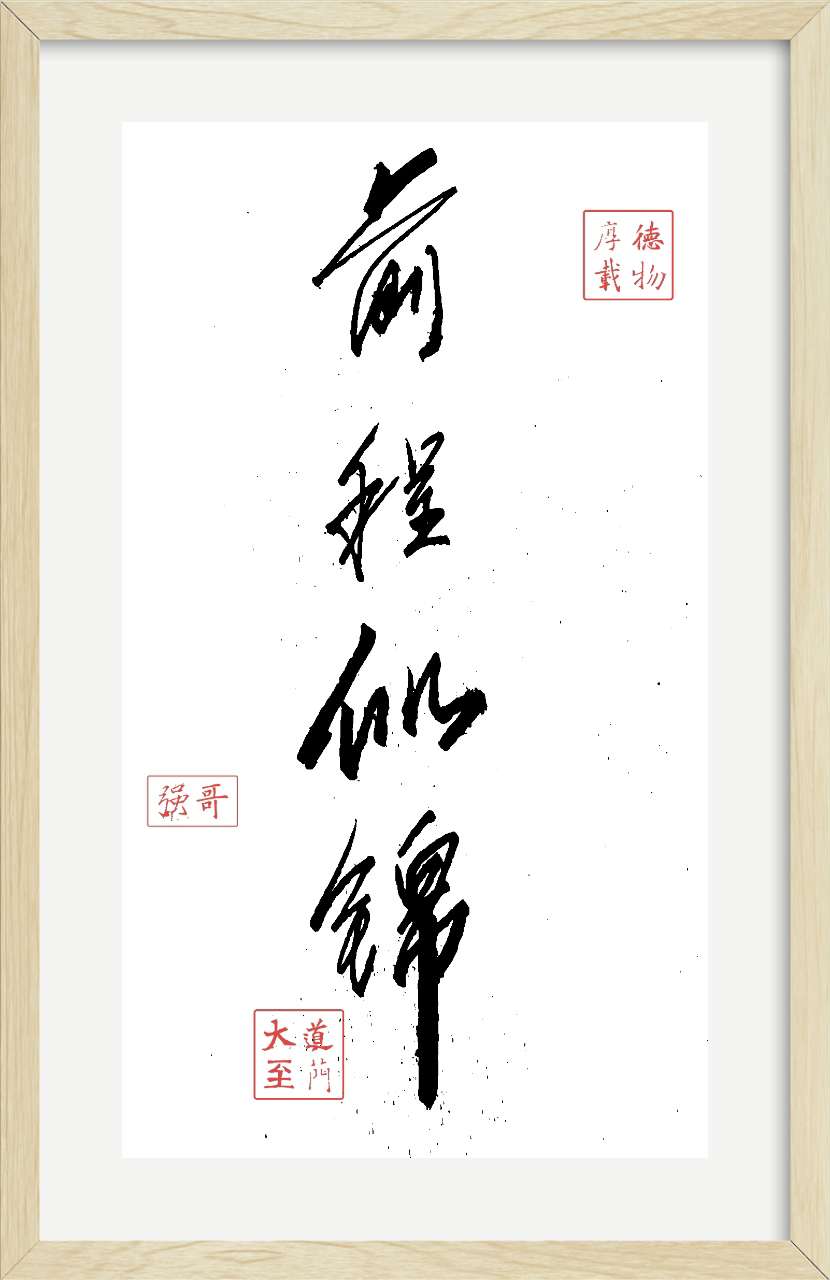 前程似锦
厚德
載物
强哥
大道
至简